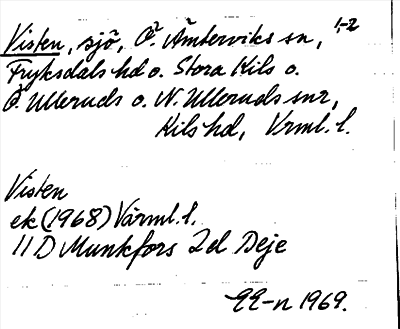 Visten, sjö, Ö. Ämterviks sn, 1-2
Fryksdals hd o. Stora Kils o.
Ö. Ulleruds o. N. Ulleruds snr,
Kils hd, Vrml. l.
Visten
ek (1968) Värml. l.
11 D Munkfors 2d Deje
1969.